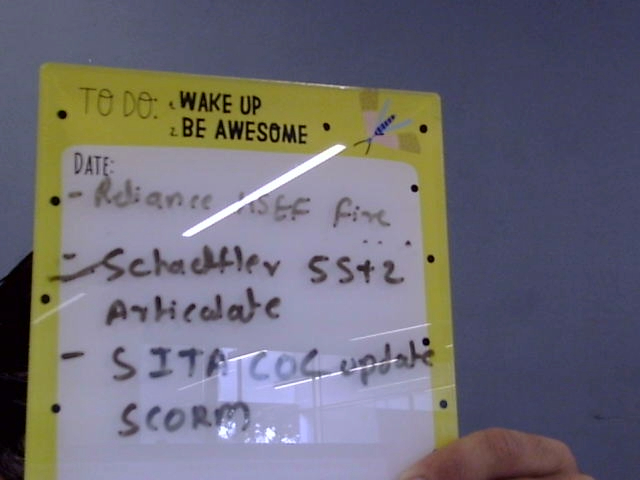 TO DO: 1. WAKE UP
2. BE AWESOME
DATE:
- Reliance HSEF fire
- Schaeffler 5S+2
Articulate
- SITA COC update
SCORM